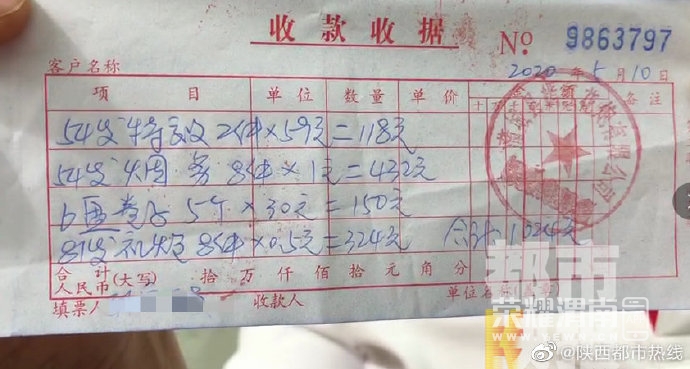 收款收据 No 9863797
客户名称 2020年5月10日
项目 单位 数量 单价 金额 备注
54发 2件×59元=118元
54发 8件×1元=432元
5个×30元=150元
81发 8件×0.5元=324元 合计1024元
合计人民币(大写) 拾 万 仟 佰 拾 元 角 分
填票人 收款人 单位名称(盖章)
都市
荣耀渭南
@陕西都市热线